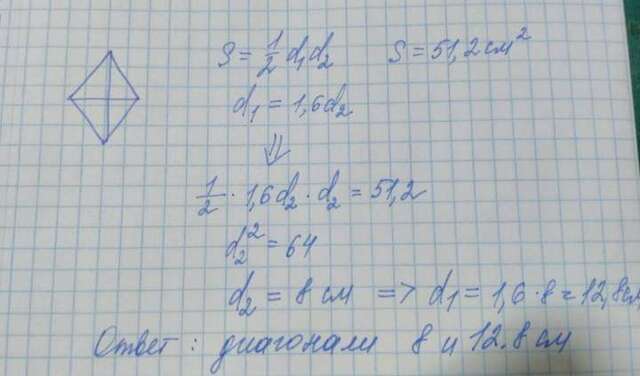 S = 1/2 d₁d₂   S = 51,2 см²
d₁ = 1,6d₂
⇓
1/2 · 1,6d₂ · d₂ = 51,2
d₂² = 64
d₂ = 8 см => d₁ = 1,6 · 8 = 12,8см
Ответ: диагонали 8 и 12.8 см